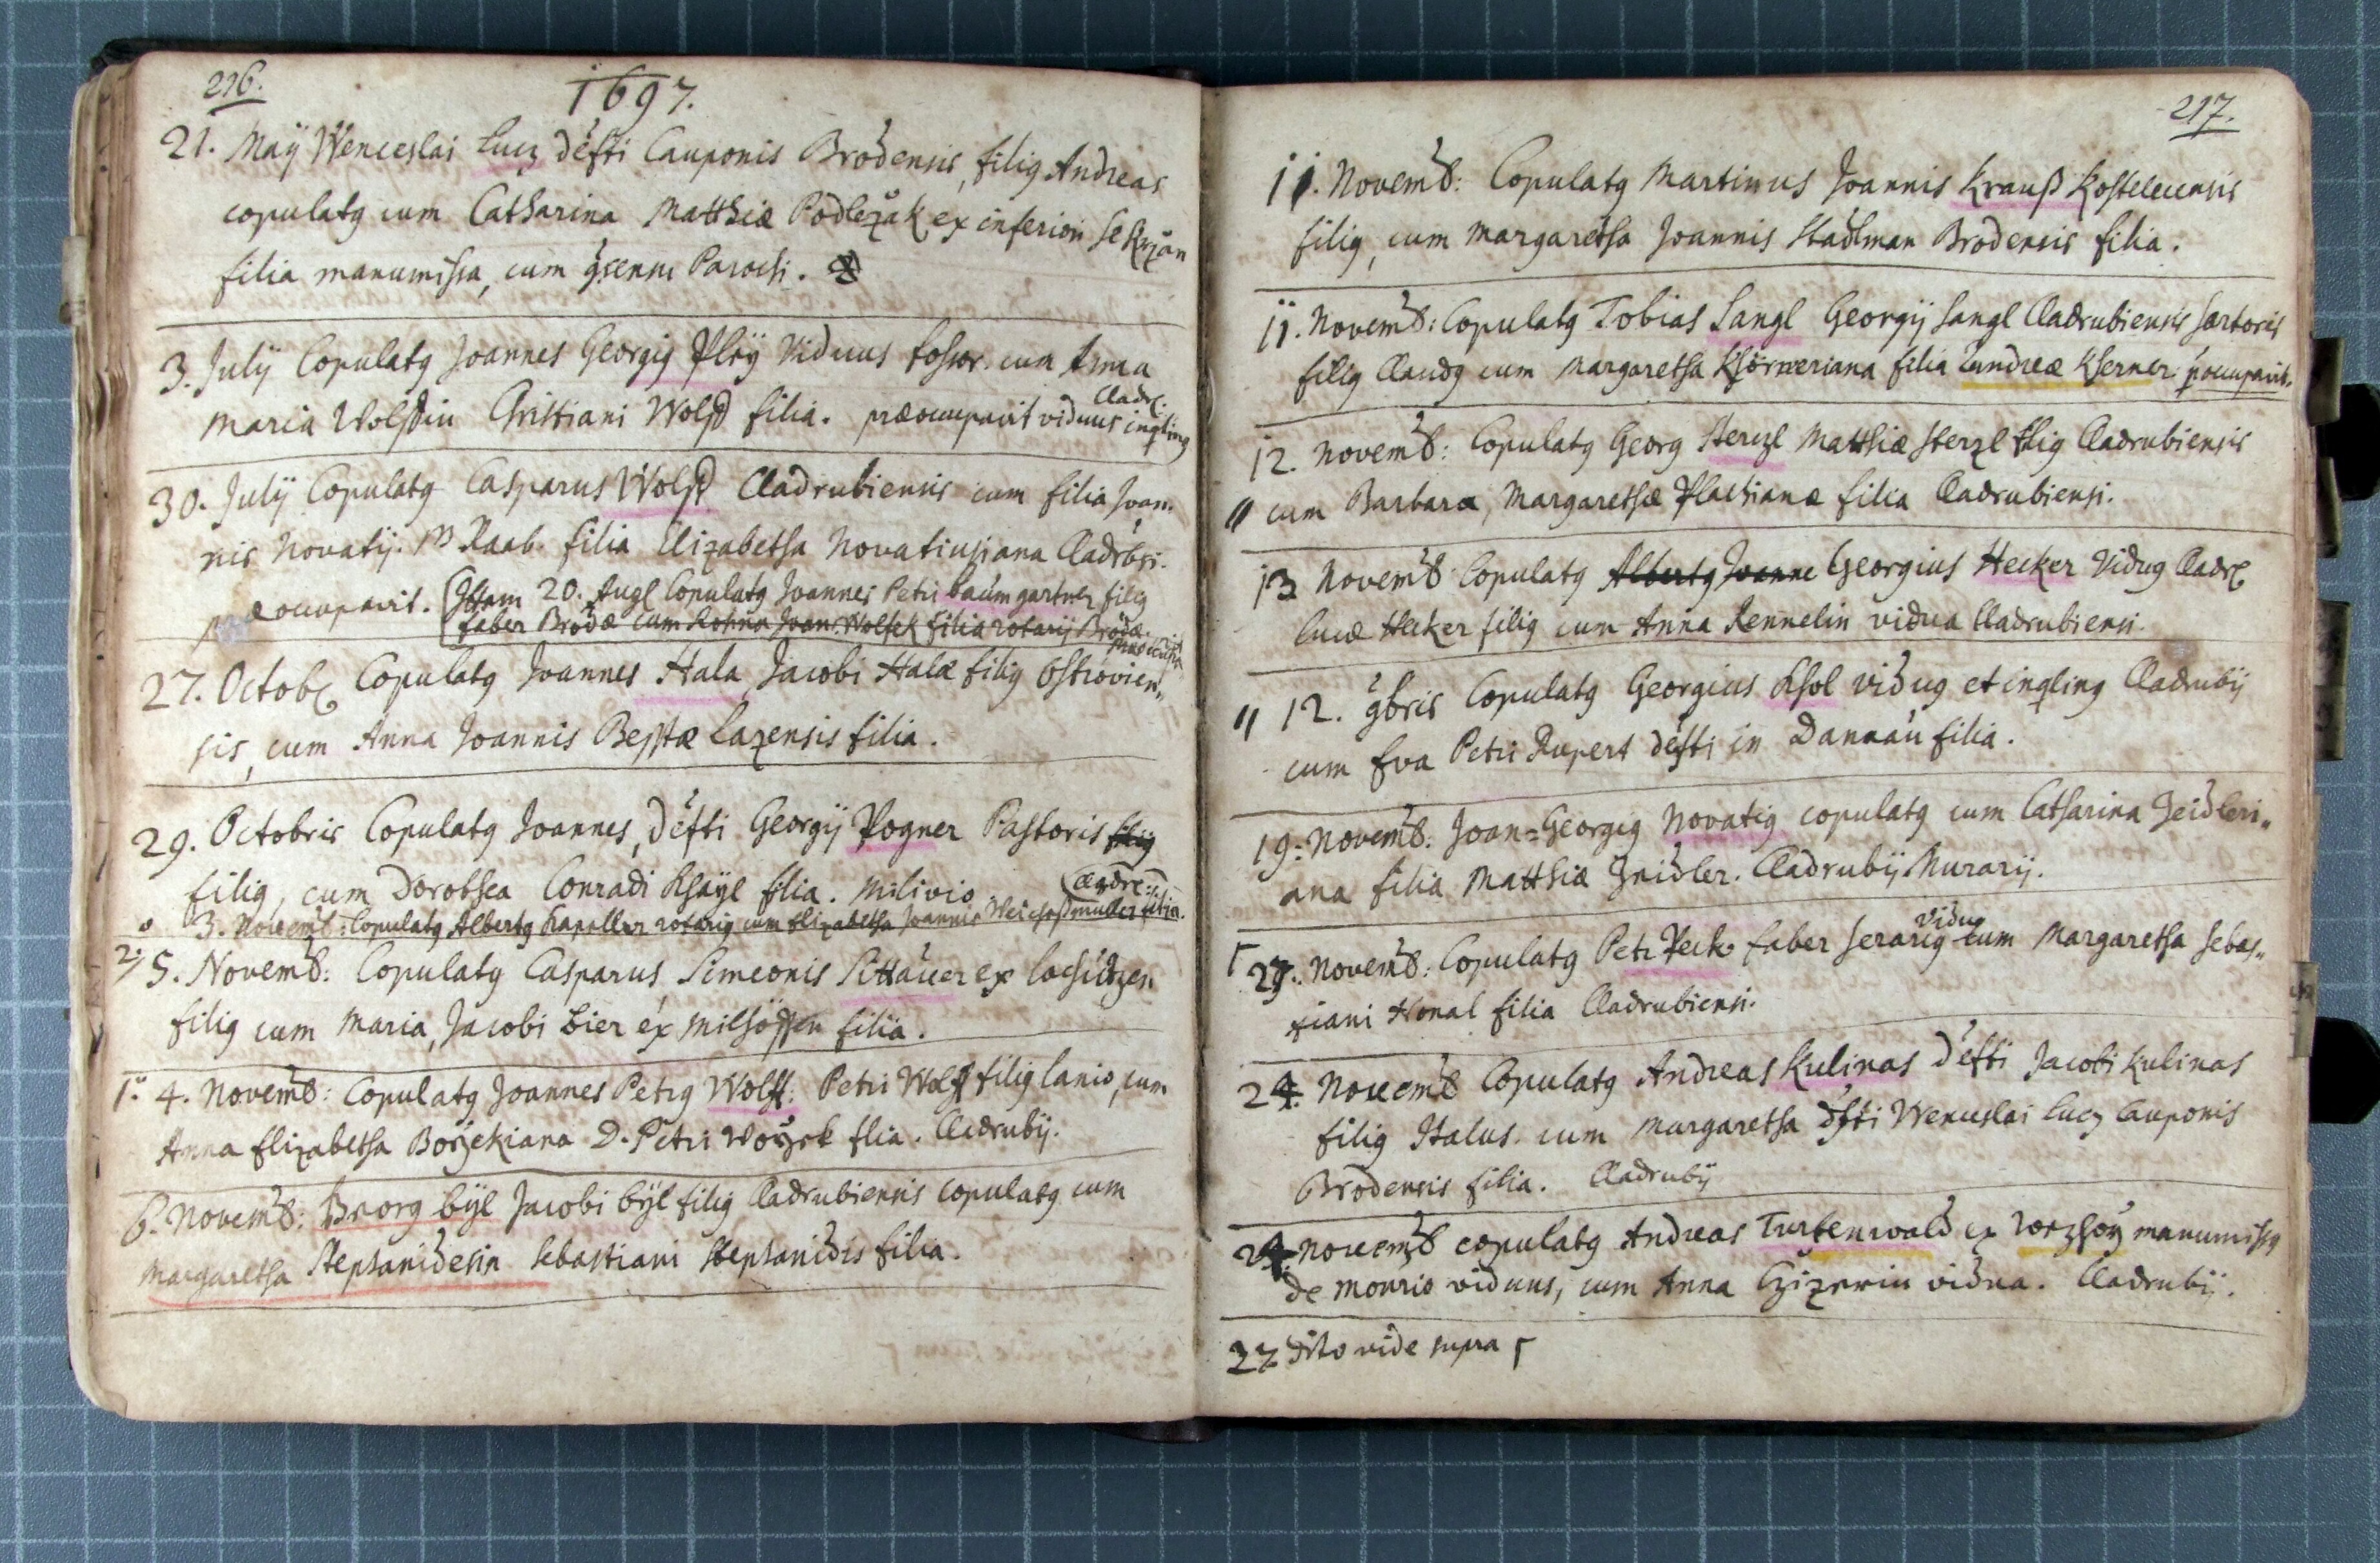 216.
1697.
21. Maÿ Wenceslai Lucz defti Cauponis Brodensis, filig Andreas
copulatg cum Catharina Matthiæ Podležak ex inferiori
filia manumissa, cum Parochi.
3. Julÿ Copulatg Joannes Georgig Plaÿ Viduus fossor. cum Anna
Cladr.
Maria Wolfin Christiani Wolf filia. præoccupavit viduus inqling
30. Julÿ Copulatg Casparus Wolf Cladrubiensis cum filia Joan-
nis Novatÿ. Raab. filia Elizabetha Novatiusiana
præoccupavit. Ittam 20. Aug Copulatg Joannes Petri baumgartner filig
faber Brodæ cum Joan: Wolfek filia rotarÿ Brodæ.
27. Octob Copulatg Joannes Hala Jacobi Halæ filig Ostrovien„
sis, cum Anna Joannis Bestæ Lazensis filia.
29. Octobris Copulatg Joannes, defti Georgÿ Pogner Pastoris filig
filig, cum Dorothea Conradi Khaÿl filia. Milivio
Cladr:
3. Novemb: Copulatg Albertg Kapeller rotarig cum Elizabetha Joannis filia.
2. 5. Novemb: Copulatg Casparus Simeonis Sittauer ex
filig cum Maria, Jacobi Bier ex filia.
1. 4. Novemb: Copulatg Joannes Petrg Wolff. Petri Wolff filig lanio, cum
Anna Elizabetha Borzekiana D. Petri filia. Cladrubÿ.
6. Novemb: Georg bÿl Jacobi bÿl filig Cladrubiensis copulatg cum
Margaretha Stephanidesin Sebastiani Stephanidis filia.
217.
11. Novemb: Copulatg Martinus Joannis Krauß Kostelecensis
filig, cum Margaretha Joannis Stadlman Brodensis filia.
11. Novemb: Copulatg Tobias Sangl Georgÿ Sangl Cladrubiensis sartoris
filig Claudg cum Margaretha Khörneriana filia Andreæ Kherner. p̄occupavit.
12. Novemb: Copulatg Georg Sterzl Matthiæ Sterzl filig Cladrubiensis
cum Barbara, Margarethæ Plachianæ filia Cladrubiensi.
13 Novemb Copulatg Albertg Joanne Georgius Hecker Vidug Cladr
Lucæ Hecker filig cum Anna Rennelin vidua Cladrubiensi.
12. 9bris Copulatg Georgius Khol vidug et inqling Cladrubÿ
cum Eva Petri Rupert defti in Dannau filia.
19. Novemb: Joan=Georgig Novatig copulatg cum Catharina Zeidleri„
ana filia Matthiæ Zeidler. Cladrubÿ Murarÿ.
vidug
27. Novemb: Copulatg Petr Peck faber serarig cum Margaretha Sebas„
tiani Honal filia Cladrubiensi.
24. Novemb Copulatg Andreas Kulinas defti Jacobi Kulinas
filig Italus. cum Margaretha defti Wenceslai Lucz Cauponis
Brodensis filia. Cladrubÿ
24 Novemb copulatg Andreas Turtenwald ex manumissg
de viduus, cum Anna vidua. Cladrubÿ.
27 Dito vide supra